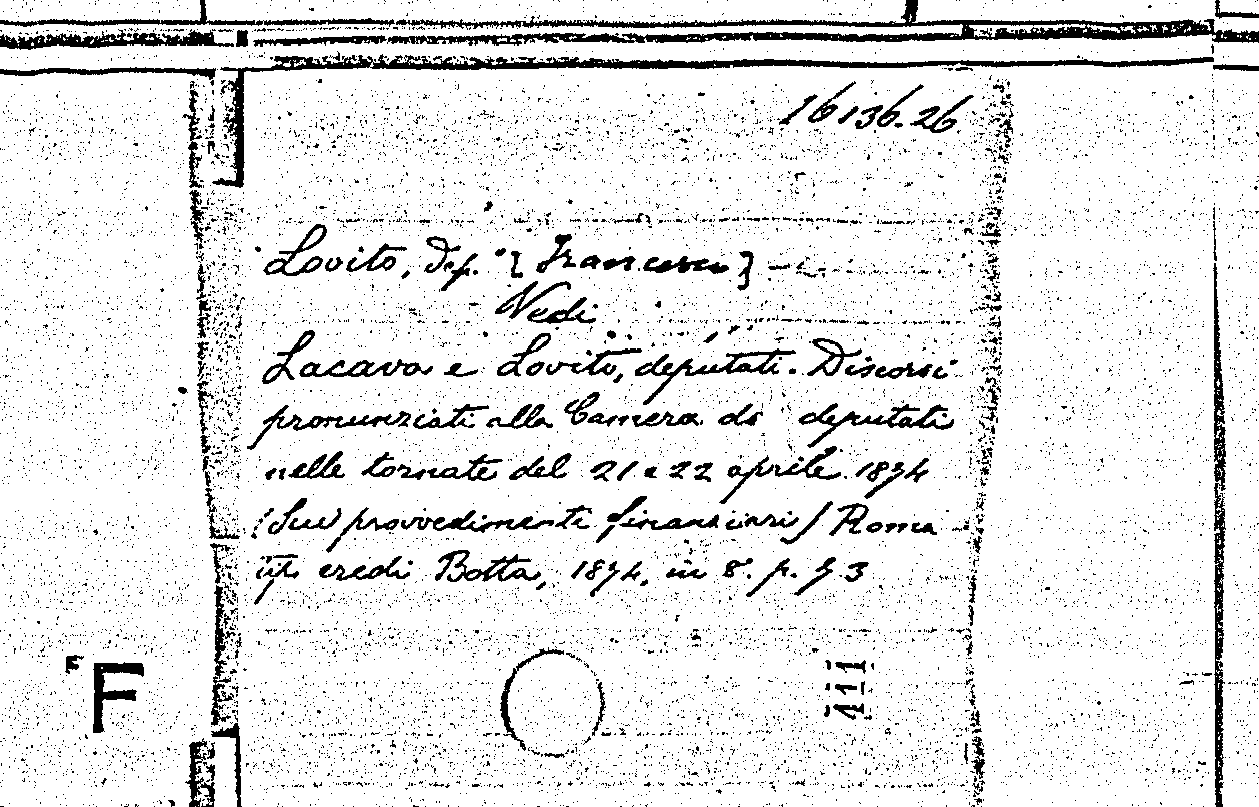 16136.26
Lovito, Dep. [Francesco]
Vedi
Lacava e Lovito, deputati. Discorsi
pronunziati alla Camera de deputati
nelle tornate del 21 e 22 aprile 1874
(Sui provvedimenti finanziari) Roma
tip. eredi Botta, 1874, in 8°. p. 73
F